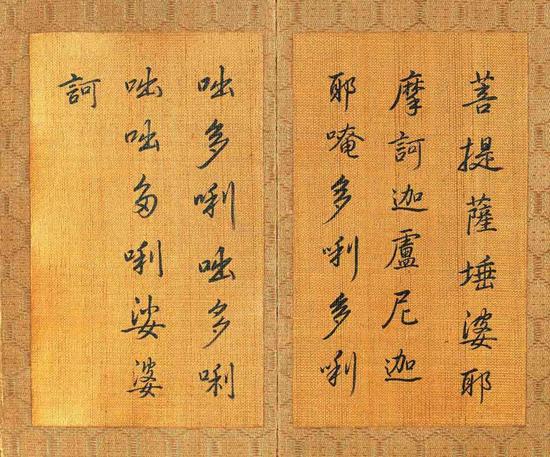 菩提薩埵婆耶
摩訶迦盧尼迦
耶唵多唎多唎
咄多唎咄多唎
咄咄多唎娑婆
訶